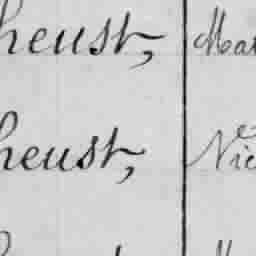 heust, Mat
heust, Nic